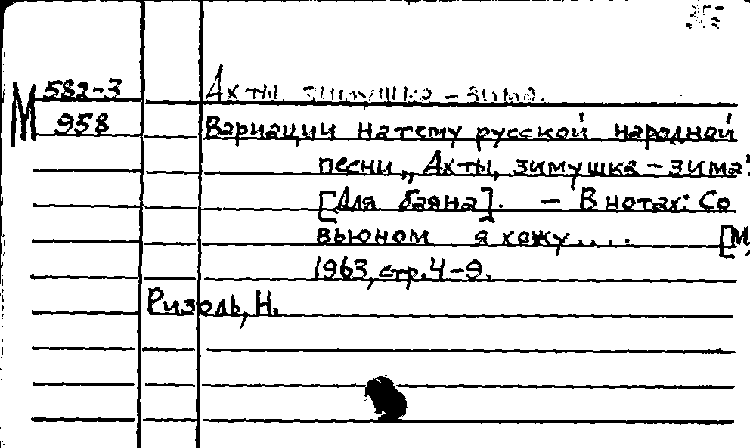 М 582-3 Ах ты зимушка - зима.
958 Вариации на тему русской народной
песни „Ах ты, зимушка - зима"
[Для баяна]. - В нотах: Со
вьюном я хожу.... [М,
1963, стр. 4-9.
Ризоль, Н.